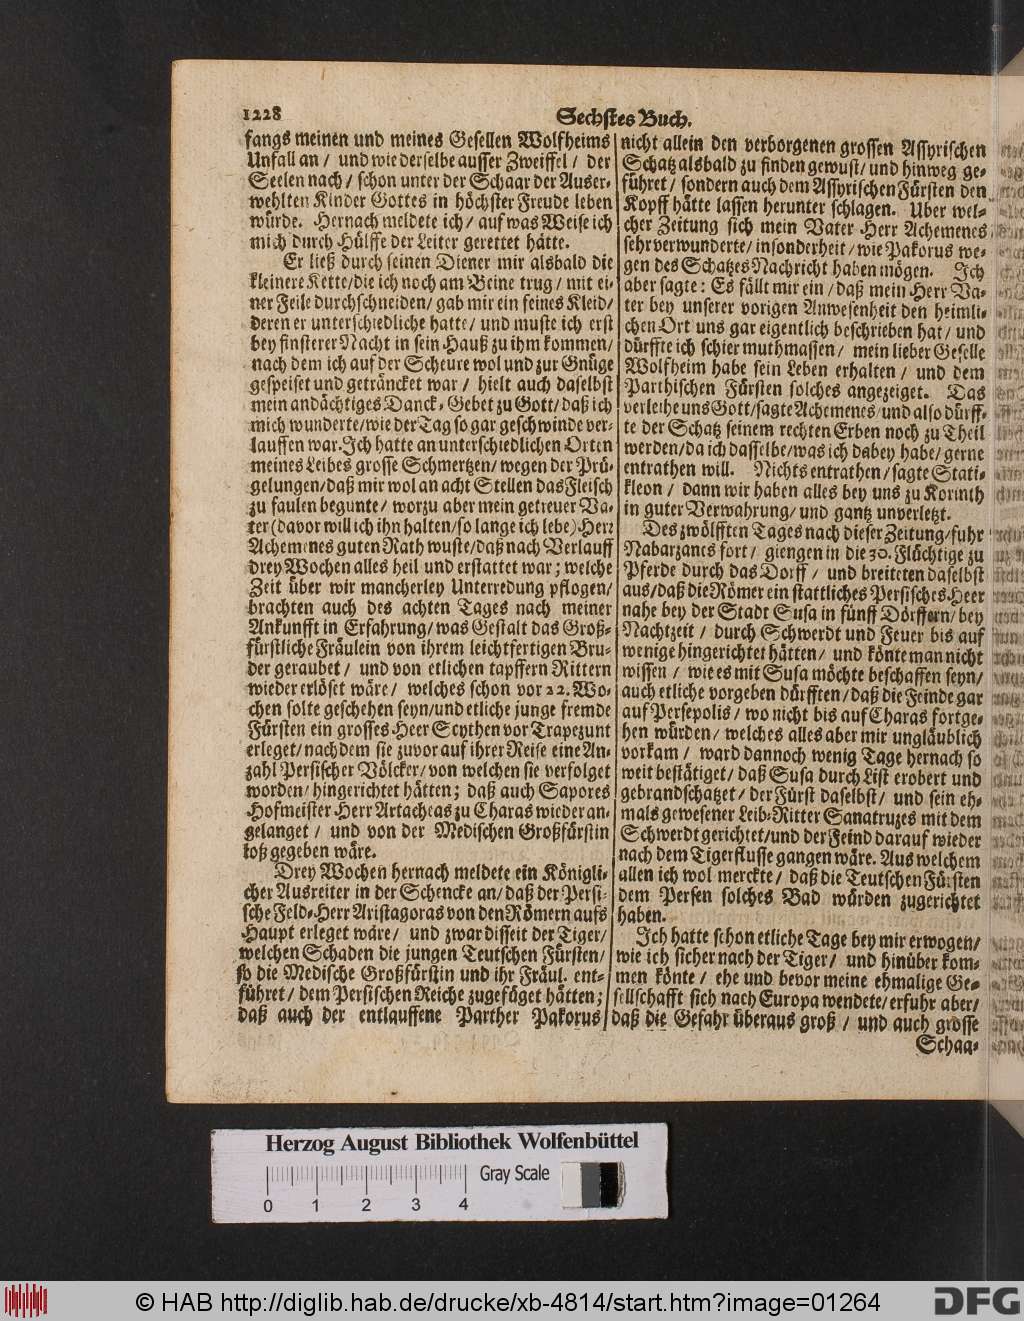 1228
Sechstes Buch.
fangs meinen und meines Gesellen Wolfheims
Unfall an / und wie derselbe ausser Zweiffel / der
Seelen nach / schon unter der Schaar der Auser-
wehlten Kinder Gottes in höchster Freude leben
würde. Hernach meldete ich / auf was Weise ich
mich durch Hülffe der Leiter gerettet hätte.
Er ließ durch seinen Diener mir alsbald die
kleinere Kette/die ich noch am Beine trug / mit ei-
ner Feile durchschneiden / gab mir ein feines Kleid/
deren er unterschiedliche hatte / und muste ich erst
bey finsterer Nacht in sein Hauß zu ihm kommen/
nach dem ich auf der Scheure wol und zur Gnüge
gespeiset und geträncket war / hielt auch daselbst
mein andächtiges Danck-Gebet zu Gott/ daß ich
mich wunderte/wie der Tag so gar geschwinde ver-
lauffen war. Ich hatte an unterschiedlichen Orten
meines Leibes grosse Schmertzen/ wegen der Prü-
gelungen/daß mir wol an acht Stellen das Fleisch
zu faulen begunte / worzu aber mein getreuer Va-
ter (davor will ich ihn halten/so lange ich lebe) Herr
Achemenes guten Rath wuste/daß nach Verlauff
drey Wochen alles heil und erstattet war; welche
Zeit über wir mancherley Unterredung pflogen/
brachten auch des achten Tages nach meiner
Ankunfft in Erfahrung/was Gestalt das Groß-
fürstliche Fräulein von ihrem leichtfertigen Bru-
der geraubet / und von etlichen tapffern Rittern
wieder erlöset wäre / welches schon vor 22. Wo-
chen solte geschehen seyn/und etliche junge fremde
Fürsten ein grosses Heer Scythen vor Trapezunt
erleget/nachdem sie zuvor auf ihrer Reise eine An-
zahl Persischer Völcker/von welchen sie verfolget
worden/ hingerichtet hätten; daß auch Sapores
Hofmeister Herr Artacheas zu Charas wieder an-
gelanget / und von der Medischen Großfürstin
loß gegeben wäre.
Drey Wochen hernach meldete ein Königli-
cher Ausreiter in der Schencke an/ daß der Persi-
sche Feld-Herr Aristagoras von den Römern aufs
Haupt erleget wäre / und zwar disseit der Tiger/
welchen Schaden die jungen Teutschen Fürsten/
so die Medische Großfürstin und ihr Fräul. ent-
führet / dem Persischen Reiche zugefüget hätten;
daß auch der entlauffene Parther Pakorus
nicht allein den verborgenen grossen Assyrischen
Schatz alsbald zu finden gewust/ und hinweg ge-
führet / sondern auch dem Assyrischen Fürsten den
Kopff hätte lassen herunter schlagen. Uber wel-
cher Zeitung sich mein Vater Herr Achemenes
sehr verwunderte/ insonderheit / wie Pakorus we-
gen des Schatzes Nachricht haben mögen. Ich
aber sagte: Es fällt mir ein / daß mein Herr Va-
ter bey unserer vorigen Anwesenheit den heimli-
chen Ort uns gar eigentlich beschrieben hat / und
dürffte ich schier muthmassen / mein lieber Geselle
Wolfheim habe sein Leben erhalten / und dem
Parthischen Fürsten solches angezeiget. Das
verleihe uns Gott/ sagte Achemenes/ und also dürff-
te der Schatz seinem rechten Erben noch zu Theil
werden/ da ich dasselbe/was ich dabey habe/ gerne
entrathen will. Nichts entrathen / sagte Stati-
kleon / dann wir haben alles bey uns zu Korinth
in guter Verwahrung/ und gantz unverletzt.
Des zwölfften Tages nach dieser Zeitung/fuhr
Nabarzanes fort / giengen in die 30. Flüchtige zu
Pferde durch das Dorff / und breiteten daselbst
aus/daß die Römer ein stattliches Persisches Heer
nahe bey der Stadt Susa in fünff Dörffern/ bey
Nachtzeit / durch Schwerdt und Feuer bis auf
wenige hingerichtet hätten / und könte man nicht
wissen / wie es mit Susa möchte beschaffen seyn/
auch etliche vorgeben dürfften/ daß die Feinde gar
auf Persepolis / wo nicht bis auf Charas fortge-
hen würden / welches alles aber mir ungläublich
vorkam / ward dannoch wenig Tage hernach so
weit bestätiget/ daß Susa durch List erobert und
gebrandschatzet / der Fürst daselbst / und sein eh-
mals gewesener Leib-Ritter Sanatruzes mit dem
Schwerdt gerichtet/und der Feind darauf wieder
nach dem Tigerflusse gangen wäre. Aus welchem
allen ich wol merckte / daß die Teutschen Fürsten
dem Persen solches Bad würden zugerichtet
haben.
Ich hatte schon etliche Tage bey mir erwogen/
wie ich sicher nach der Tiger / und hinüber kom-
men könte / ehe und bevor meine ehmalige Ge-
sellschafft sich nach Europa wendete/ erfuhr aber/
daß die Gefahr überaus groß / und auch grosse
Schaa-
Herzog August Bibliothek Wolfenbüttel
Gray Scale
0 1 2 3 4
© HAB http://diglib.hab.de/drucke/xb-4814/start.htm?image=01264
DFG